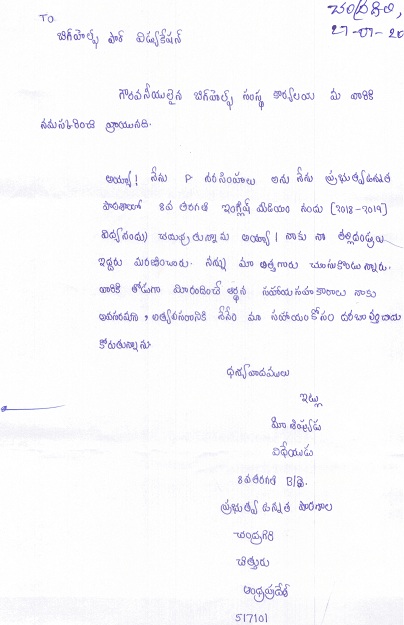 చంద్రగిరి,
27-07-20
TO
బిగ్‌హెల్ప్ ఫార్ ఎడ్యుకేషన్
గౌరవనీయులైన బిగ్‌హెల్ప్ సంస్థ కార్యాలయ మీ వారికి
నమస్కరించి వ్రాయునది.
అయ్యా! నేను P నరసింహులు అను నేను ప్రభుత్వ ఉన్నత
పాఠశాలలో 8వ తరగతి ఇంగ్లీష్ మీడియం నందు [2018-2019]
విద్య(నందు) చదువుతున్నాను అయ్యా! నాకు నా తల్లిదండ్రులు
ఇద్దరు మరణించారు. నన్ను మా అత్తగారు చూసుకొంటున్నారు.
వారికి తోడుగా మీరందించే ఆర్థిక సహాయ సహకారాలు నాకు
అవసరమైన, అత్యవసరానికి నేను మీ సహాయం కోసం
కోరుతున్నాను.
ధన్యవాదములు
ఇట్లు
మీ
విధేయుడు
8వ తరగతి B/సె.
ప్రభుత్వ ఉన్నత పాఠశాల
చంద్రగిరి
చిత్తూరు
ఆంధ్రప్రదేశ్
517101